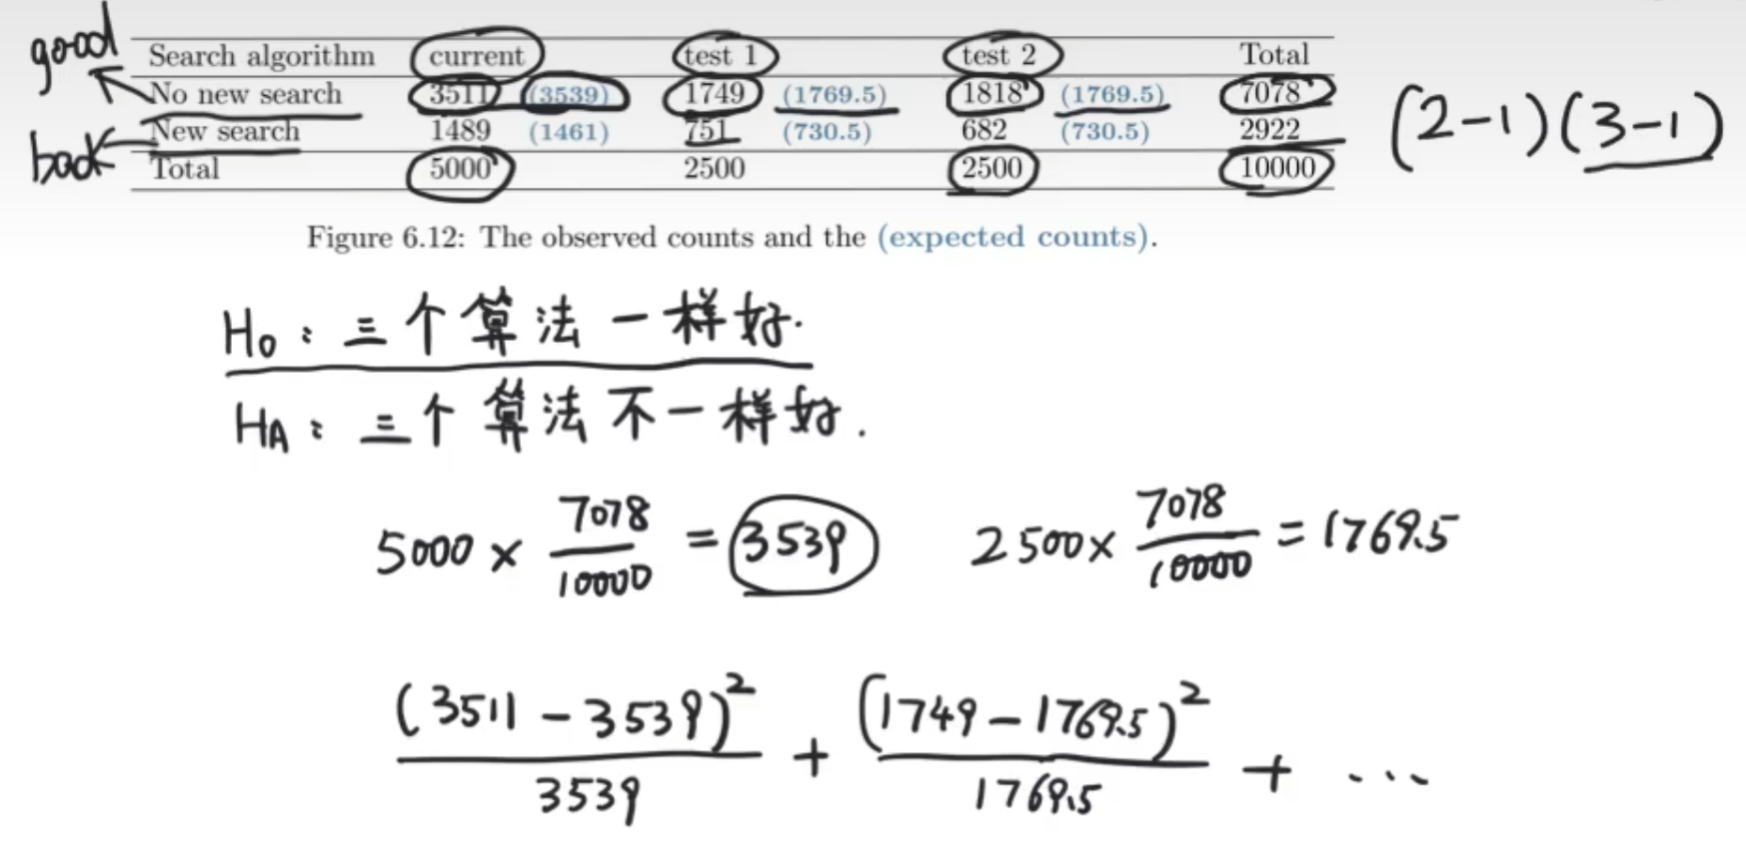 good
Search algorithm current test 1 test 2 Total
No new search 3511 (3539) 1749 (1769.5) 1818 (1769.5) 7078
New search 1489 (1461) 751 (730.5) 682 (730.5) 2922
bad
Total 5000 2500 2500 10000
(2-1)(3-1)
Figure 6.12: The observed counts and the (expected counts).
H0: 三个算法一样好.
HA: 三个算法不一样好.
5000 × 7078/10000 = 3539 2500 × 7078/10000 = 1769.5
(3511 - 3539)²/3539 + (1749 - 1769.5)²/1769.5 + ...